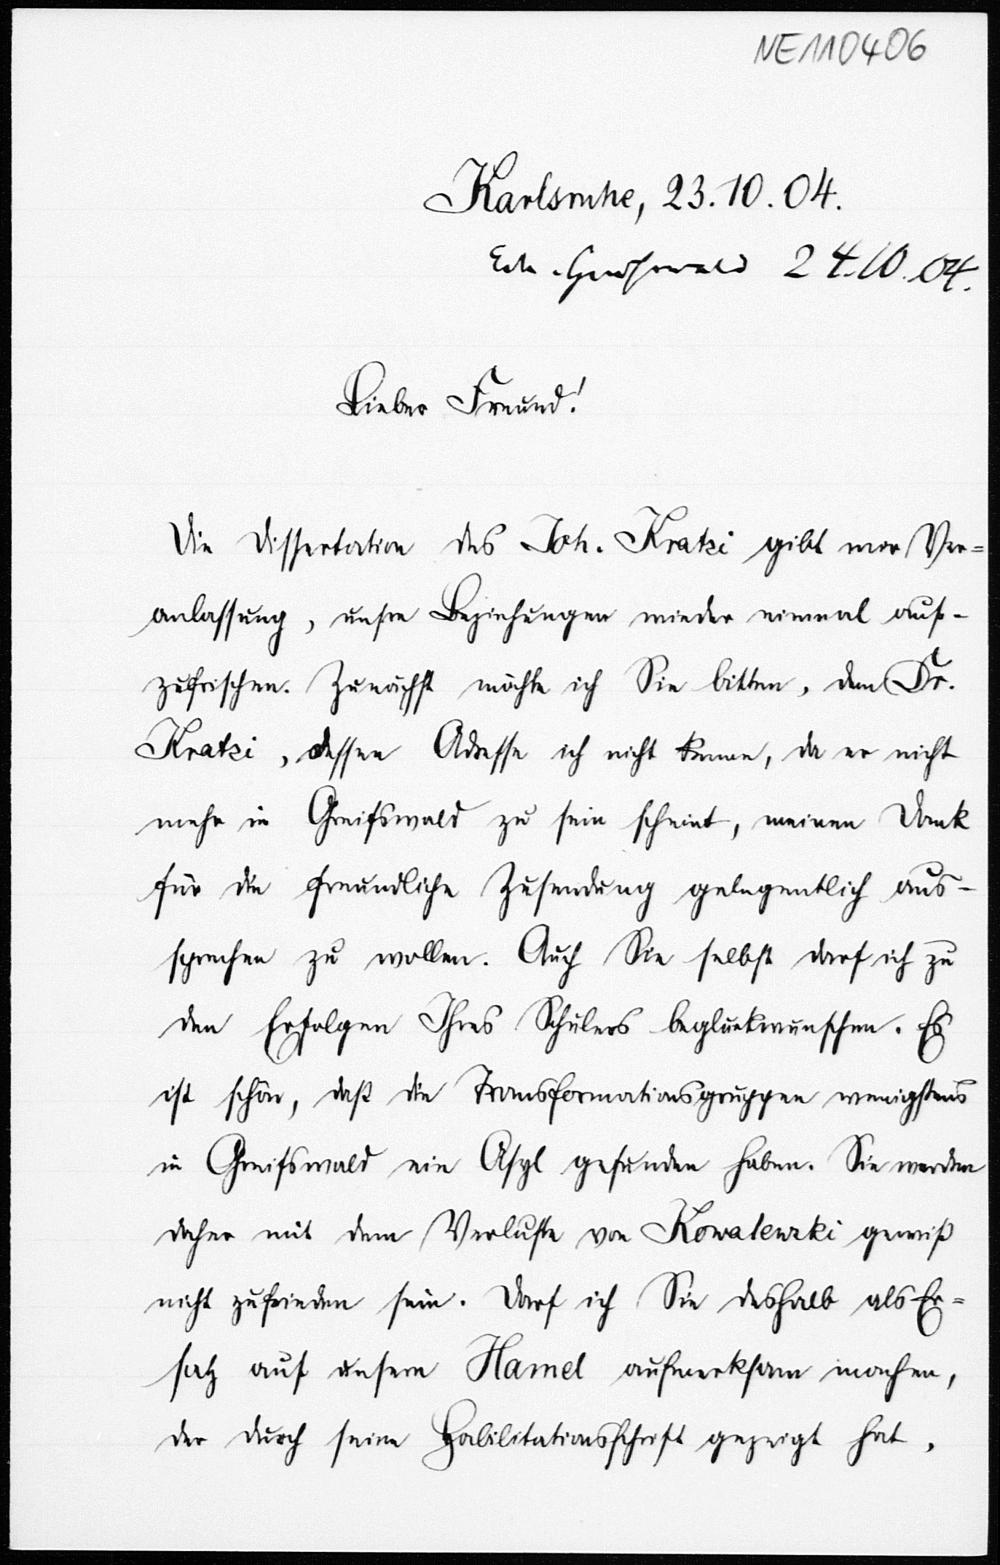 NE110406
Karlsruhe, 23.10.04.
Greifswald 24.10.04.
Lieber Freund!
Die Dissertation des Joh. Kratzi gibt mir Ver=
anlassung, unsre Beziehungen wieder einmal auf-
zufrischen. Zunächst möchte ich Sie bitten, dem Dr.
Kratzi, dessen Adresse ich nicht kenne, da er nicht
mehr in Greifswald zu sein scheint, meinen Dank
für die freundliche Zusendung gelegentlich aus-
sprechen zu wollen. Auch Sie selbst darf ich zu
den Erfolgen Ihres Schülers beglückwünschen. Es
ist schön, daß die Transformationsgruppen wenigstens
in Greifswald ein Asyl gefunden haben. Sie werden
daher mit dem Verluste von Kowalewski gewiß
nicht zufrieden sein. Darf ich Sie deshalb als Er=
satz auf unsern Hamel aufmerksam machen,
der durch seine Habilitationsschrift gezeigt hat,